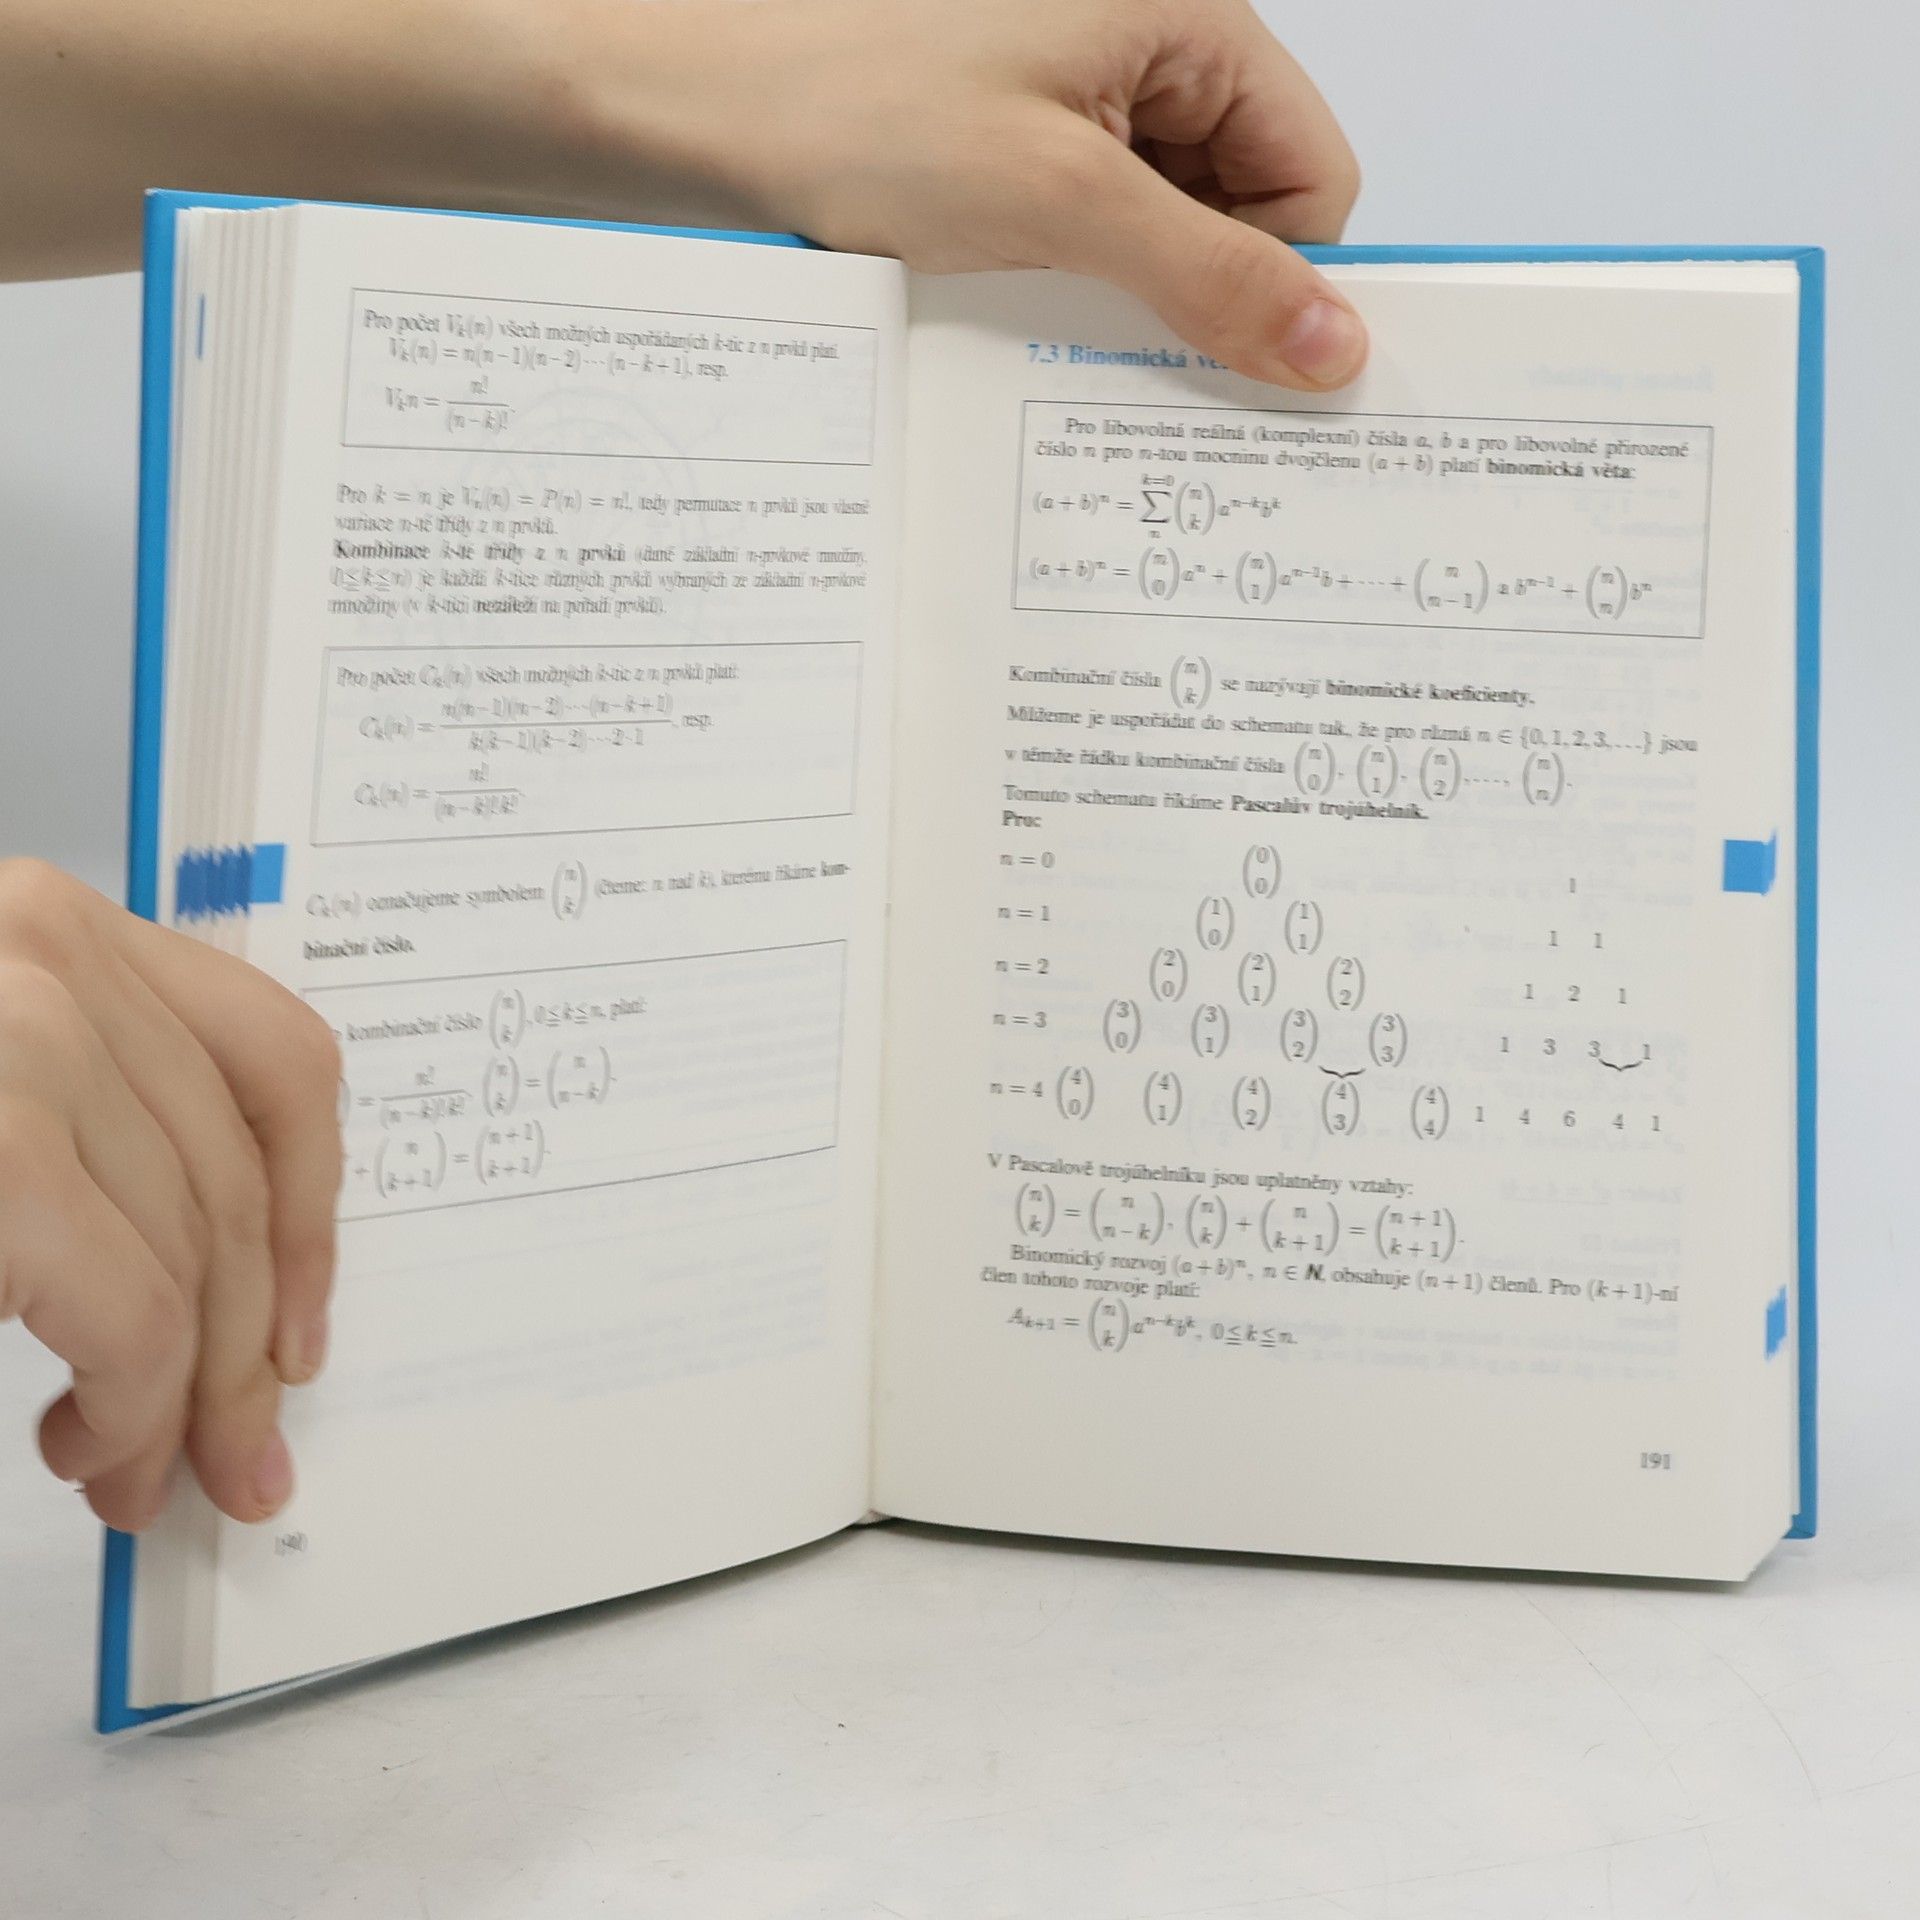 Pro počet V_k(n) všech možných uspořádaných k-tic z n prvků platí:
V_k(n) = n(n − 1)(n − 2) ··· (n − k + 1), resp.
V_k n = n! / (n − k)!.
Pro k = n je V_n(n) = P(n) = n!, tedy permutace n prvků jsou vlastně
variace n-té třídy z n prvků.
Kombinace k-té třídy z n prvků (dané základní n-prvkové množiny,
0 ≦ k ≦ n) je každá k-tice různých prvků vybraných ze základní n-prvkové
množiny (v k-tici nezáleží na pořadí prvků).
Pro počet C_k(n) všech možných k-tic z n prvků platí:
C_k(n) = n(n − 1)(n − 2) ··· (n − k + 1) / k(k − 1)(k − 2) ··· 2 · 1, resp.
C_k(n) = n! / (n − k)! k!.
C_k(n) označujeme symbolem (n k) (čteme: n nad k), kterému říkáme kom-
binační číslo.
kombinační číslo (n k), 0 ≦ k ≦ n, platí:
= n! / (n − k)! k!, (n k) = (n n − k).
+ (n k + 1) = (n + 1 k + 1).
190
7.3 Binomická
Pro libovolná reálná (komplexní) čísla a, b a pro libovolné přirozené
číslo n pro n-tou mocninu dvojčlenu (a + b) platí binomická věta:
(a + b)^n = ∑_{n}^{k=0} (n k) a^{n−k} b^k
(a + b)^n = (n 0) a^n + (n 1) a^{n−1} b + ··· + (n n − 1) a b^{n−1} + (n n) b^n
Kombinační čísla (n k) se nazývají binomické koeficienty.
Můžeme je uspořádat do schematu tak, že pro různá n ∈ {0, 1, 2, 3, ...} jsou
v témže řádku kombinační čísla (n 0), (n 1), (n 2), ..., (n n).
Tomuto schematu říkáme Pascalův trojúhelník.
Pro:
n = 0 (0 0) 1
n = 1 (1 0) (1 1) 1 1
n = 2 (2 0) (2 1) (2 2) 1 2 1
n = 3 (3 0) (3 1) (3 2) (3 3) 1 3 3 1
n = 4 (4 0) (4 1) (4 2) (4 3) (4 4) 1 4 6 4 1
V Pascalově trojúhelníku jsou uplatněny vztahy:
(n k) = (n n − k), (n k) + (n k + 1) = (n + 1 k + 1).
Binomický rozvoj (a + b)^n, n ∈ N, obsahuje (n + 1) členů. Pro (k + 1)-ní
člen tohoto rozvoje platí:
A_{k+1} = (n k) a^{n−k} b^k, 0 ≦ k ≦ n.
191